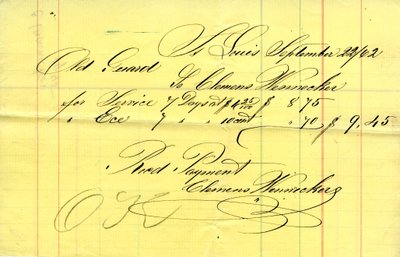 St Louis September 22/02
Old Guard
To Clemens Wennecker
for Service 7 Days at $ 1 25/100 $ 8 75
" Ece 7 " " want " 70 $ 9.45
Recd Payment
Clemens Wennecker
OK